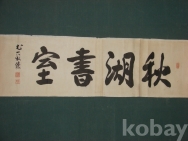 kobay
秋湖書室